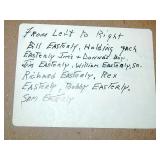 From Left to Right
Bill Easterly, Holding Zach
Easterly Jim's + Donna's boy.
Jim Easterly, William Easterly, Sr.
Richard Easterly, Rex
Easterly, Bobby Easterly,
Sam Easterly